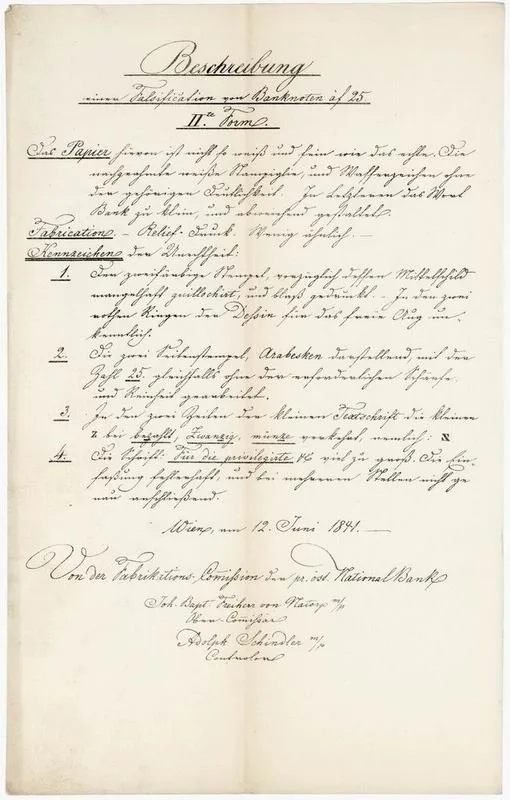 Beschreibung
einer Falsification von Banknoten à f 25.
IIte Form.
Das Papier hievon ist nicht so weiß und fein wie das echte. Die
nachgeahmte weiße Stampiglie, und Wasserzeichen ohne
der gehörigen Deutlichkeit. In Letzteren das Wort
Bank zu klein, und abweichend gestaltet.
Fabrication. – Relief-Druck. Wenig ähnlich. –
Kennzeichen der Unechtheit:
1. Der zweifärbige Stempel, vorzüglich dessen Mittelschild
mangelhaft guillochirt, und blaß gedruckt. – In den zwei
rothen Ringen der Dessin für das freie Aug un-
kenntlich.
2. Die zwei Seitenstempel, Arabesken darstellend, mit der
Zahl 25. gleichfalls ohne der erforderlichen Schärfe
und Reinheit gearbeitet.
3. In den zwei Zeilen der kleinen Textschrift die kleinen
z bei bezahlt, Zwanzig, münze verkehrt, nemlich:
4. Die Schrift: Für die privilegirte &c viel zu groß. Die Ein-
faßung fehlerhaft, und bei mehreren Stellen nicht ge-
nau anschließend.
Wien, am 12. Juni 1841. –
Von der Fabrikations-Comission der pr. öst. National Bank
Joh. Bapt. Freiherr von m/p
Ober-Commissär
Adolph Schindler m/p
Controlor